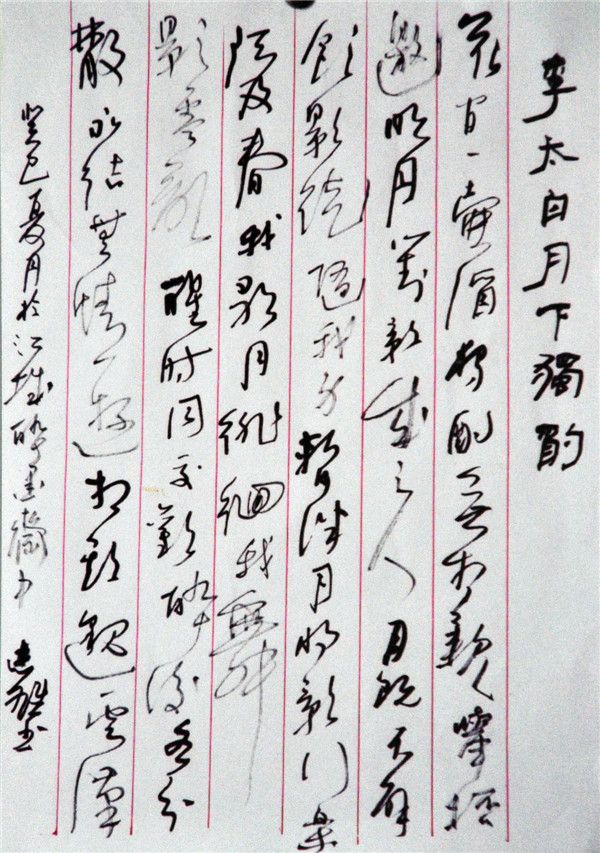 李太白月下獨酌
花间一壺酒獨酌無相親舉杯
邀明月對影成三人月既不解
飲影徒隨我身暫伴月將影行樂
須及春我歌月徘徊我舞
影零亂醒时同交歡醉後各分
散永結無情遊相期邈雲漢
癸巳夏月於江城醉墨齋中